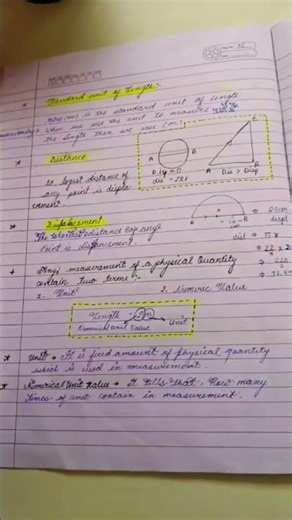 Standard unit of Length:-
Metre (m) is the standard unit of length
we use this unit to measure
the length then we use (m)
Distance
A B
Disp = 0
dis = 2πr
A B
Dis > Disp
longest distance of
any point is displa-
cement.
Displacement
The shortest distance of any
Point is displacement.
dist = πr
Any measurement of a physical Quantity
contain two terms:-
1. Unit 2. Numeric Value
Length = 5m
Numerical Value Unit
Unit → It is fixed amount of physical quantity
which is used in measurement.
Numerical Unit Value → It tells that. How many
times of unit contain in measurement.